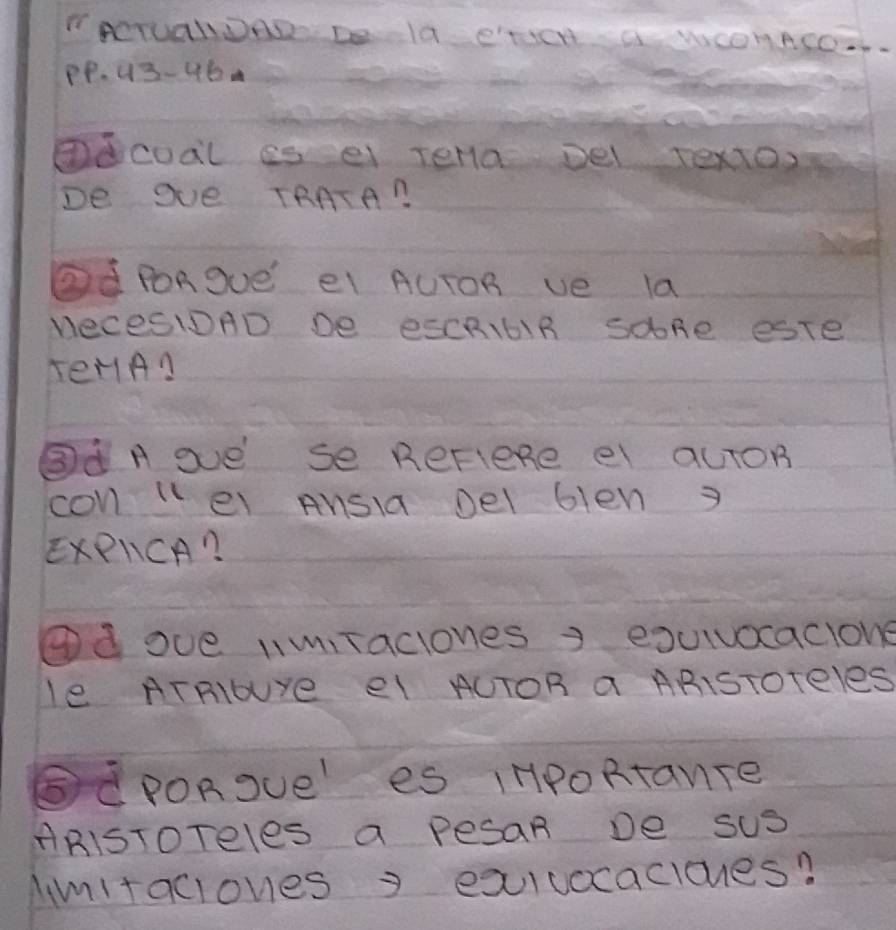 "ACTUALIDAD De la eTICA a NICOMACO...
PP. 43-46.
① ¿cual es el Tema Del Texto,
De que TRATA?
② ¿PORqué el AUTOR ve la
necesIDAD De escRIbIR sobRe esTe
TeMA?
③ ¿A qué se RefieRe el auTOR
con "el Ansia Del bien y
EXPlICA?
④ ¿que limiTaciones y equivocacions
le ATRIbuye el AUTOR a ARISTOTeles
⑤ ¿PORqué es IMPORTanTe
ARISTOTeles a PesaR De sus
limiTaciones y equivocaciones?